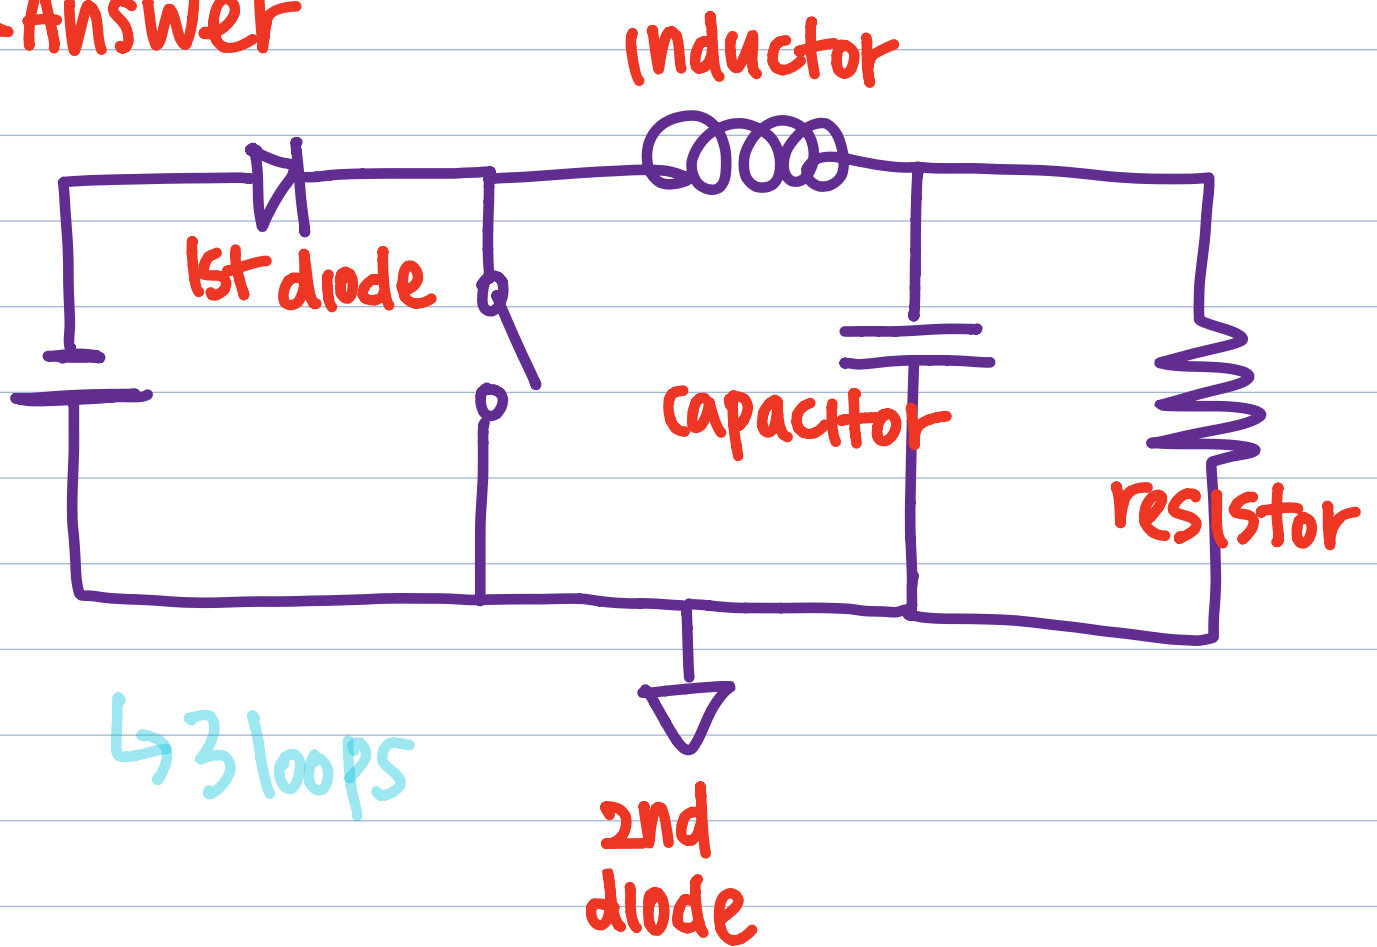 -Answer
inductor
1st diode
capacitor
resistor
↳ 3 loops
2nd
diode